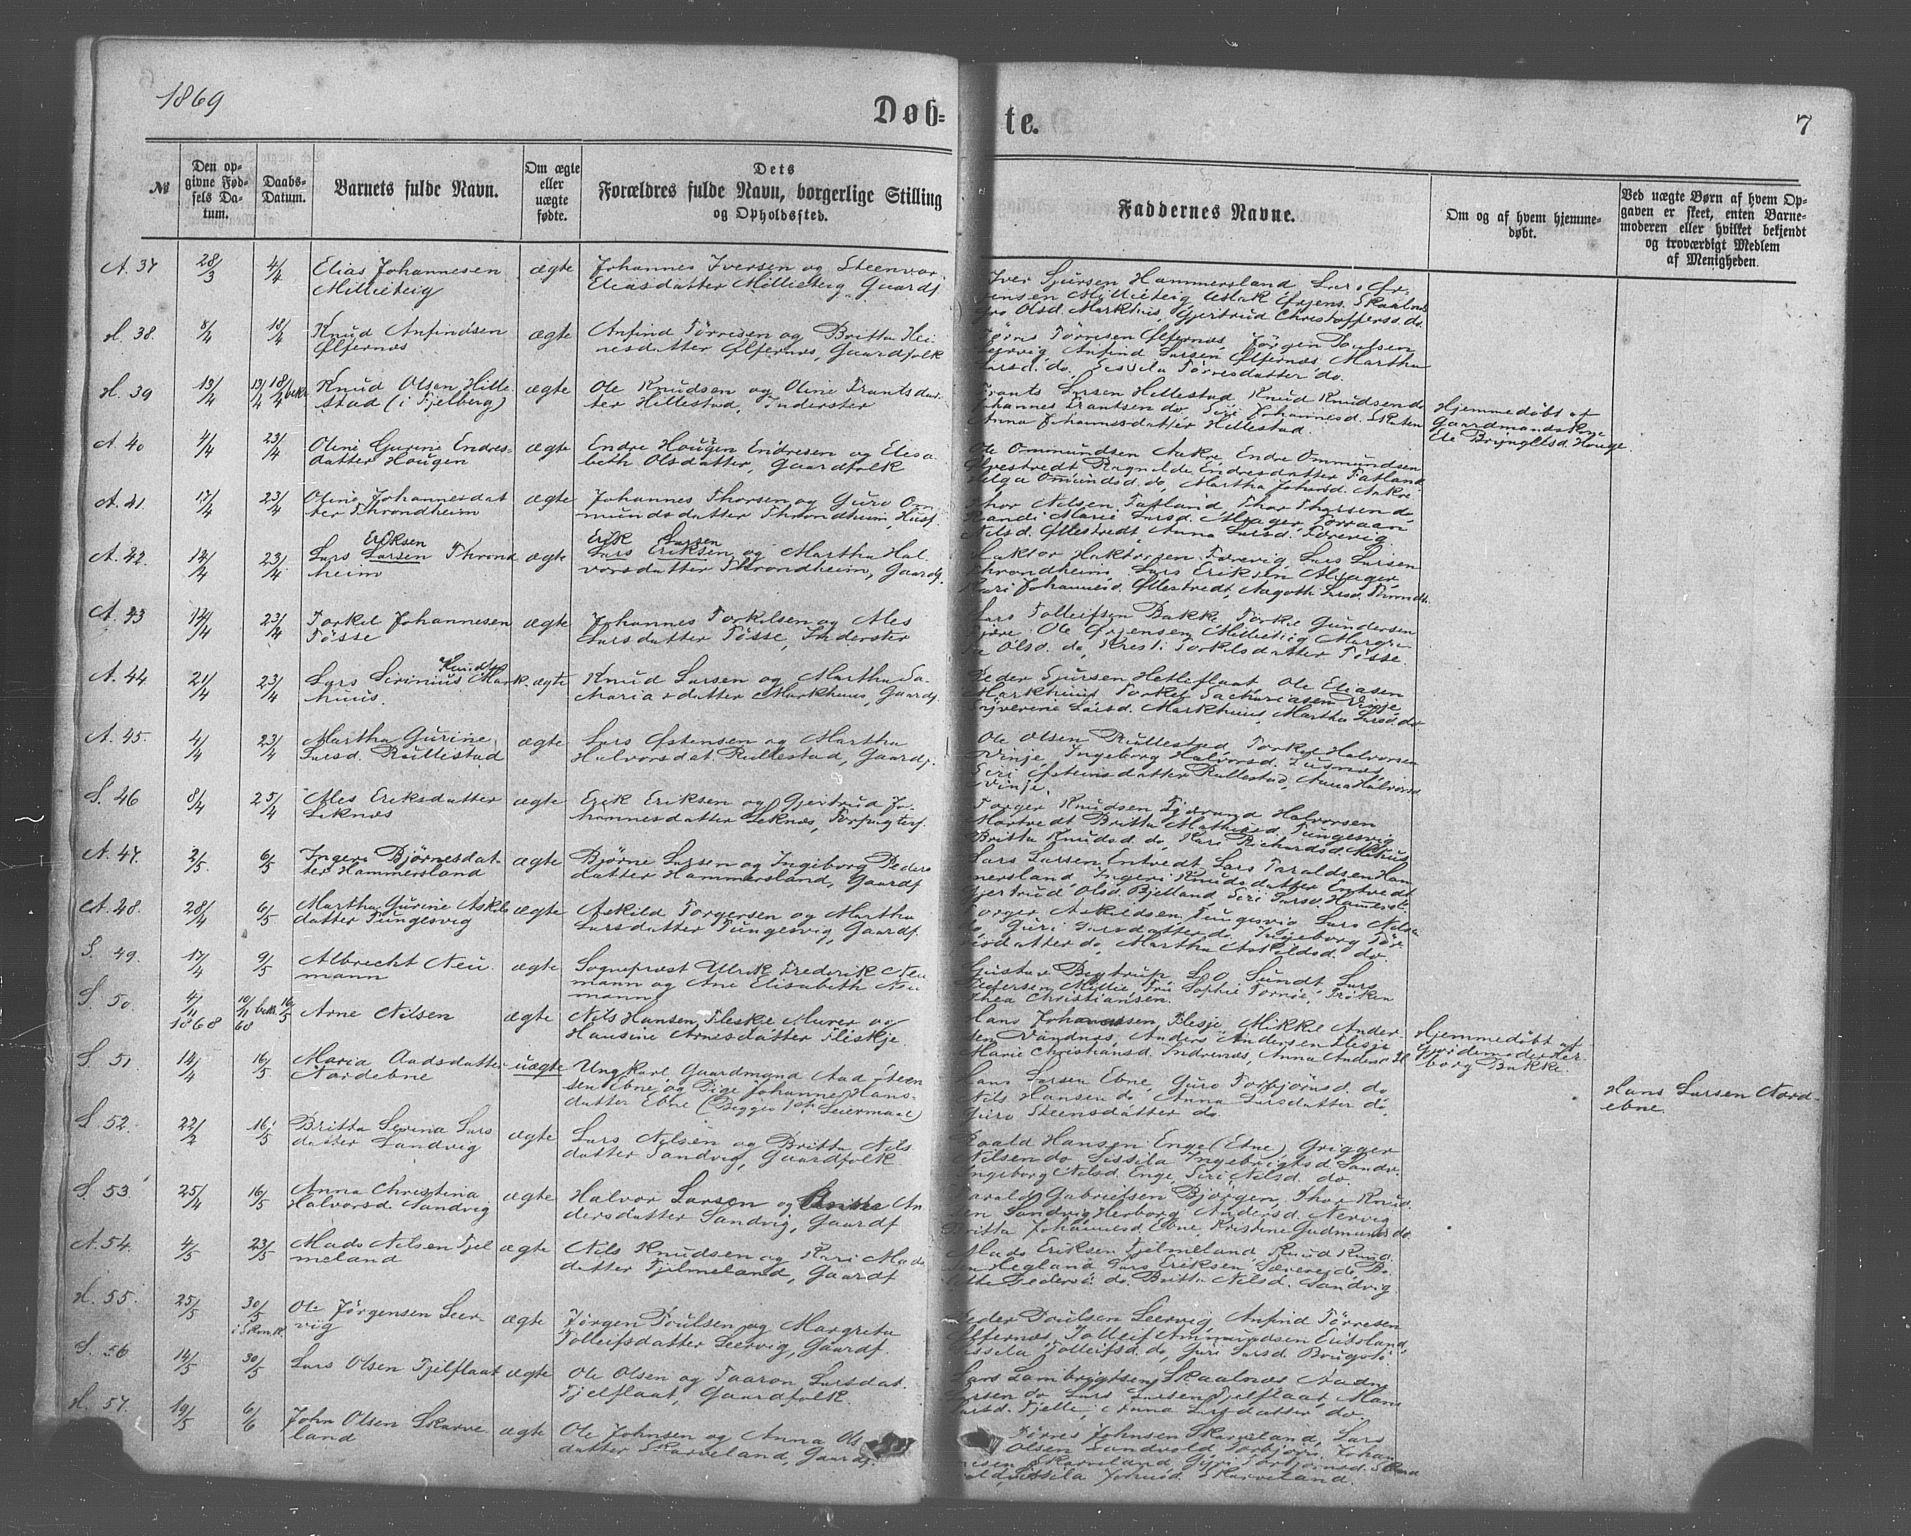 1869
Døb=
te.
7
№
Den op-
givne Fød-
sels Da-
tum.
Daabs-
Datum.
Barnets fulde Navn.
Om ægte
eller
uægte
fødte.
Dets
Forældres fulde Navn, borgerlige Stilling
og Opholdssted.
Faddernes Navne.
Om og af hvem hjemme-
døbt.
Ved uægte Børn af hvem Op-
gaven er skeet, enten Barne-
moderen eller hvilket bekjendt
og troværdigt Medlem
af Menigheden.
A. 37 28/3 4/4 Elias Johannesen ægte Johannes Iversen og Steenvor
Millieteig Eliasdatter Millieteig, Gaardf.
Iver Sjursen Hammersland, Lars
Millieteig
Olsd. Markhus, Gjertrud Christoffersd. do
H. 38. 8/4 18/4 Knud Anfindsen ægte Anfind Tørresen og Britta Hei-
Ølfernæs nesdatter Ølfernæs, Gaardfolk
Tørris Tørresen Ølfernæs, Jørgen Poulsen
Leervig Anfind Larsen Ølfernæs, Martha
Larsd. do, Sessila Tørresdatter do.
H. 39 13/4 13/4 18/4 bekr. Knud Olsen Hille- ægte Ole Knudsen og Oline Frantsdat-
stad (i Fjelberg) ter Hillestad, Inderster
Frants Larsen Hillestad, Knud Knudsen do
Johannes Frantsen do, Siri Johannesd. Skaten
Anna Johannesdatter Hillestad.
Hjemmedøbt af
Gaardmandskone
Ele Bryngelsd. Houge
A. 40 4/4 23/4 Oline Gurine Endres- ægte Endre Hougen Endresen og Elisa
datter Hougen beth Olsdatter, Gaardfolk
Ole Ommundsen Aakre, Endre Ommundsen
Øfvestvedt Ragnilde Endresdatter Fatland
Helga Omundsd. do, Martha Johansd. Aakre
A. 41. 17/4 23/4 Oline Johannesdat ægte Johannes Thorsen og Guro Om
ter Throndheim mundsdatter Throndheim, Husf.
Thor Nilsen Fatland, Thor Thorsen do
Randi Marie Larsd. Alsager,
Nilsd. Øllestvedt, Anna Larsd. Tørevig
A. 42. 12/4 23/4 Lars Eriksen Larsen Thrond ægte Erik Larsen Lars Eriksen og Martha Hal
heim vorsdatter Throndheim, Gaardf.
Haktor Haktorsen Tørevig, Lars Larsen
Throndheim, Lars Eriksen Alsager,
Kari Johannesd. Øllestvedt, Aagoth Larsd.
A. 43 14/4 23/4 Torkel Johannesen ægte Johannes Torkelsen og Ales
Tøsse Larsdatter Tøsse, Inderster
Lars Tolleifsen Bakke Torkel Gundersen
Ole Ørjensen Millieteig
Olsd. do, Kristi Torkelsdatter Tøsse.
A. 44 21/4 23/4 Lars Sirinius Knuds. Mark- ægte Knud Larsen og Martha Za-
huus. Mariasdatter Markhuus, Gaardf.
Peder Sjursen Hetleflaat Ole Eliasen
Markhuus Torkel Sachariasen Vinje
Larsd. Markhuus, Martha Larsd. do
A. 45. 4/4 23/4 Martha Gurine ægte Lars Østensen og Martha
Larsd. Rullestad Halvorsdat. Rullestad, Gaardf.
Ole Olsen Rullestad, Torkel Halvorsen
Vinje, Ingeborg Halvorsd.
Siri Østensdatter Rullestad, Anna Halvorsd
Vinje.
S. 46 8/4 25/4 Ales Eriksdatter ægte Erik Eriksen og Gjertrud Jo-
Leknæs hannesdatter Leknæs, Forpagterf.
Torger Knudsen Halvorsen
Martvedt Britta Mathiasd. Tungesvig
Britta Knudsd. do, Kari Richardsd.
A. 47. 2/5. 6/5 Ingeri Bjørnesdat- ægte Bjørne Larsen og Ingeborg Peders
ter Hammersland datter Hammersland, Gaardf
Lars Larsen Entvedt, Lars Taraldsen Ham
mersland, Ingeri Knudsdatter Entvedt
Gjertrud Olsd. Bjelland, Siri Larsd. Hamersl.
A. 48. 28/4 6/5 Martha Gurine Askils ægte Askild Torgersen og Martha
datter Tungesvig Larsdatter Tungesvig, Gaardf.
Torger Askildsen Tungesvig Lars Nilsen
do, Guri Larsdatter do, Ingeborg Tor
datter do, Martha Askildsd. do.
S. 49. 17/4 9/5 Albrecht Neu ægte Sognepræst Ulrik Frederik Neu
mann mann og Ane Elisabeth Neu
mann
Gustav Bugtrup Sundt Lars
Pedersen Frøken
Thea Christiansen.
S. 50. 4/11 1868 10/11 68 bekr. 16/5 Arne Nilsen ægte Nils Hansen Fleskje Murer og
Hansine Arnesdatter Fleskje
Hans Johannesen Flesje, Mikkel Ander
sen Vandnæs, Anders Andersen Flesje
Marie Christiansd. Indrenæs, Anna Andersd.
Hjemmedøbt af
Gjordemoder
borg Bakke.
S. 51. 14/4 16/5 Maria Aadsdatter uægte Ungkarl Gaardmand Aad Steen
Nordebne sen Ebne og Pige Johanne Hans-
datter Ebne (Begges 1ste Leiermaal)
Hans Larsen Ebne, Guro Torbjørnsd. do
Nils Hansen do Anna Larsdatter do,
Guro Steensdatter do.
Hans Larsen Nord-
ebne
S. 52. 22/2 16/5 Britta Serina Lars ægte Lars Nilsen og Britta Nils
datter Sandvig datter Sandvig, Gaardfolk
Roald Hansen Enge (Etne), Grigger
Nilsen do Sissila Ingebrigtsd. Sandv.
Ingeborg Nilsd. Enge, Siri Nilsd. do.
S. 53. 25/4 16/5 Anna Christina ægte Halvor Larsen og Britta An
Halvorsd. Sandvig dersdatter Sandvig, Gaardf
Tarald Gabrielsen Bjørgen, Thor Knud
sen Sandvig Herborg Andersd. Nervig
Britta Johannesd. Ebne, Kristine Gudmundsd. do.
A. 54. 4/5 23/5 Mads Nilsen Fjel ægte Nils Knudsen og Kari Mads
meland datter Fjelmeland, Gaardf
Mads Eriksen Fjelmeland Knud Knud
sen Hegland Lars Eriksen
Pedersd. do. Britta Nilsd. Sandvig
H. 55. 25/5 30/5 Ole Jørgensen Leer- ægte Jørgen Poulsen og Margreta
vig Tolleifsdatter Leervig, Gaardf.
Peder Poulsen Leervig, Anfind Tørresen
Ølfernæs, Tolleif Ammundsen
Sissela Tolleifsd. do, Guri Larsd.
S. 56 14/5 30/5 Lars Olsen Fjelflaat ægte Ole Olsen og Taaron Larsdat.
Fjelflaat, Gaardfolk.
Lars Lambregtsen Skaalnæs Aadne
Larsen do Lars Larsen Fjelflaat, Mari
Larsd. Fjelle, Anna Larsdatter do.
H. 57. 19/5 6/6 John Olsen Skarve ægte Ole Johnsen og Anna Ols
land datter Skarveland, Gaardf.
Tørres Johnsen Skarveland, Lars
Olsen Sandvold Torbjørn Johan
nesen Skarveland, Guri Torbjørnsd.
Sissila Johnsd. Skarveland.